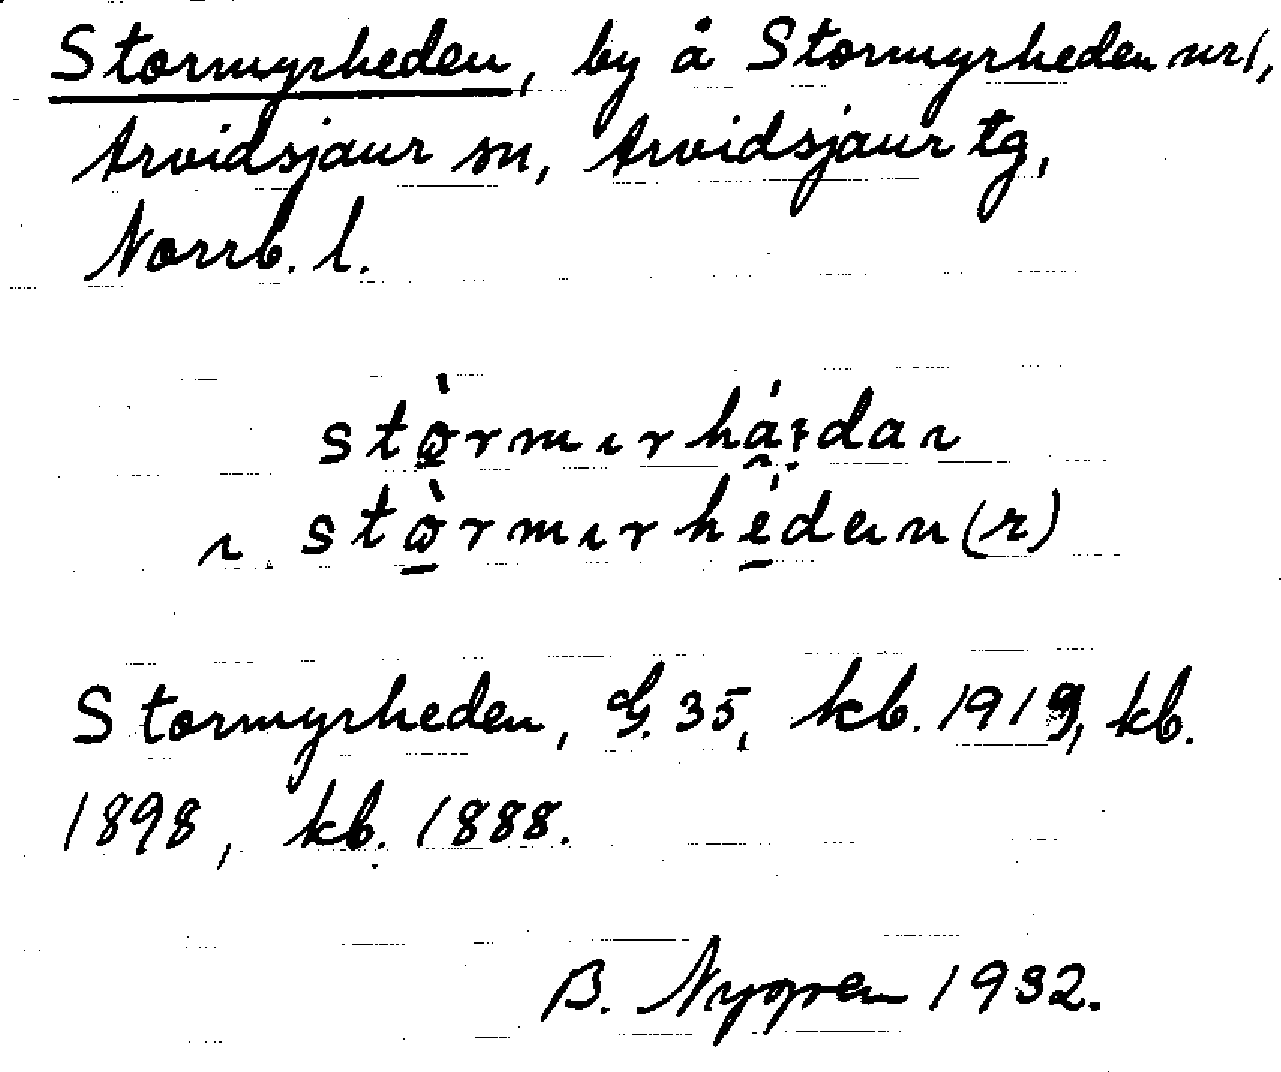 Stormyrheden, by å Stormyrheden nr 1,
Arvidsjaur sn, Arvidsjaur tg,
Norrb. l.
Stormyrheden, G. 35, kb. 1919, kb.
1898, kb. 1888.
B. Nygren 1932.